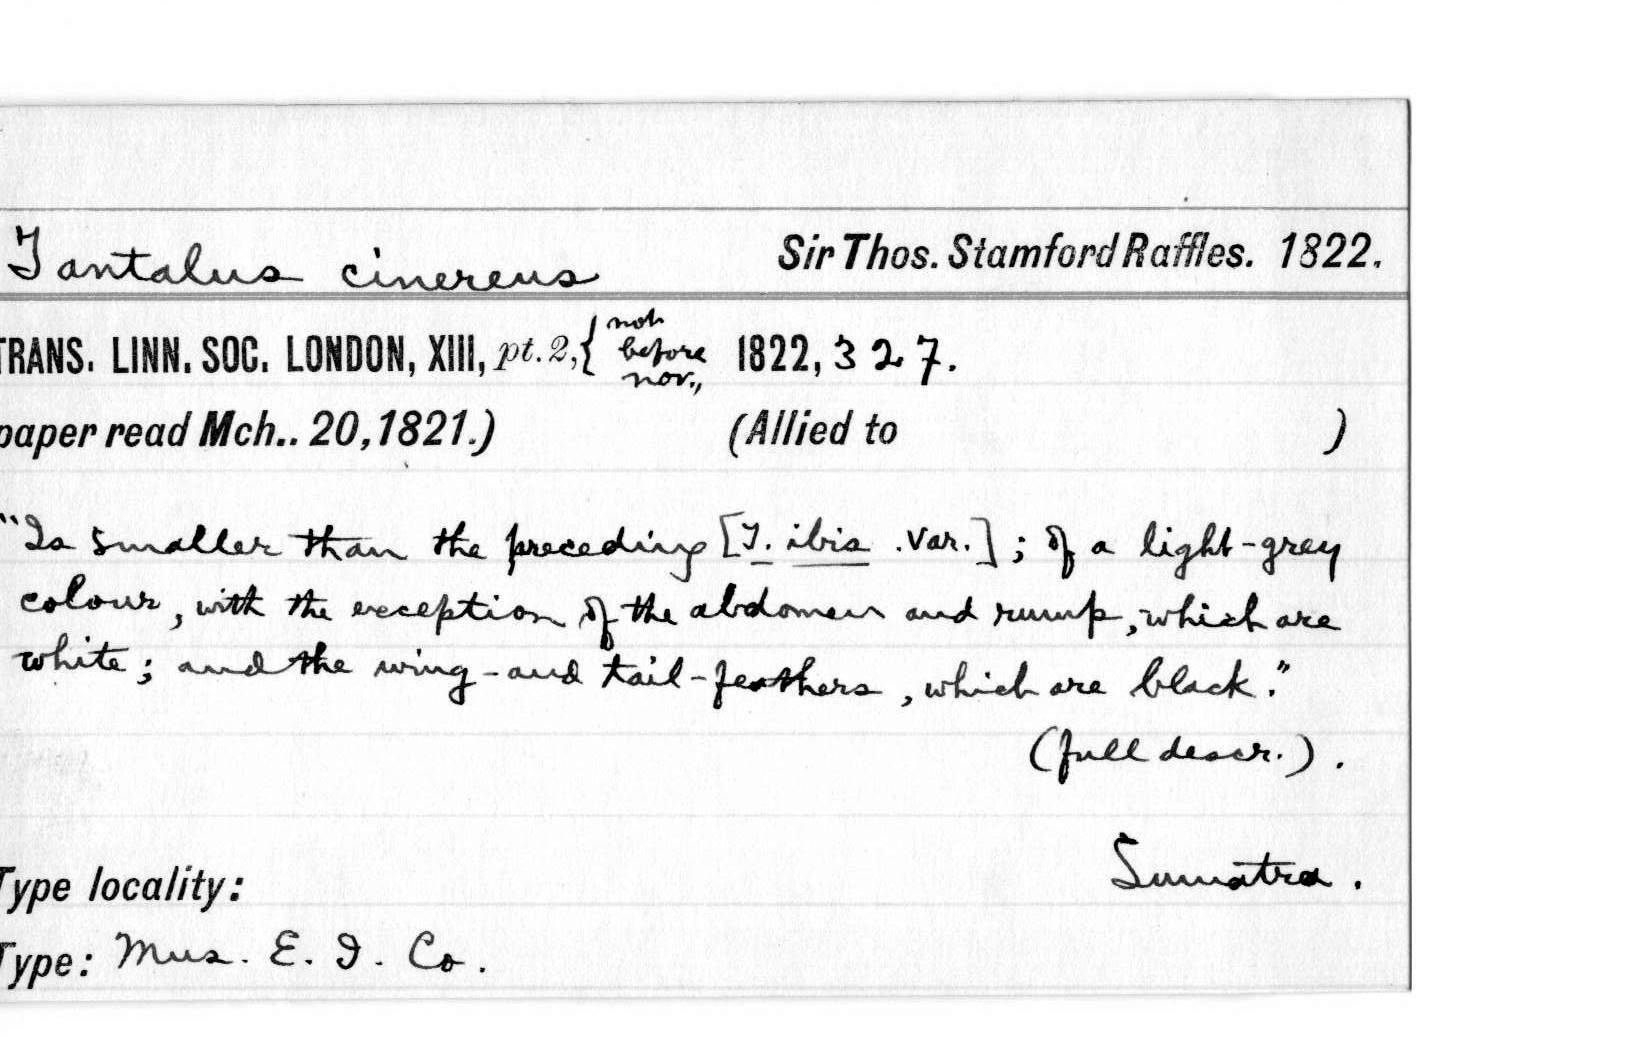 Tantalus cinereus Sir Thos. Stamford Raffles. 1822.
TRANS. LINN. SOC. LONDON, XIII, pt. 2, { not before nov., 1822, 327.
paper read Mch.. 20, 1821.) (Allied to )
"Is smaller than the preceding [T. ibis .var.] ; of a light-grey
colour, with the exception of the abdomen and rump, which are
white; and the wing-and tail-feathers, which are black."
(full descr.) .
Sumatra .
Type locality:
Type: Mus. E. I. Co.